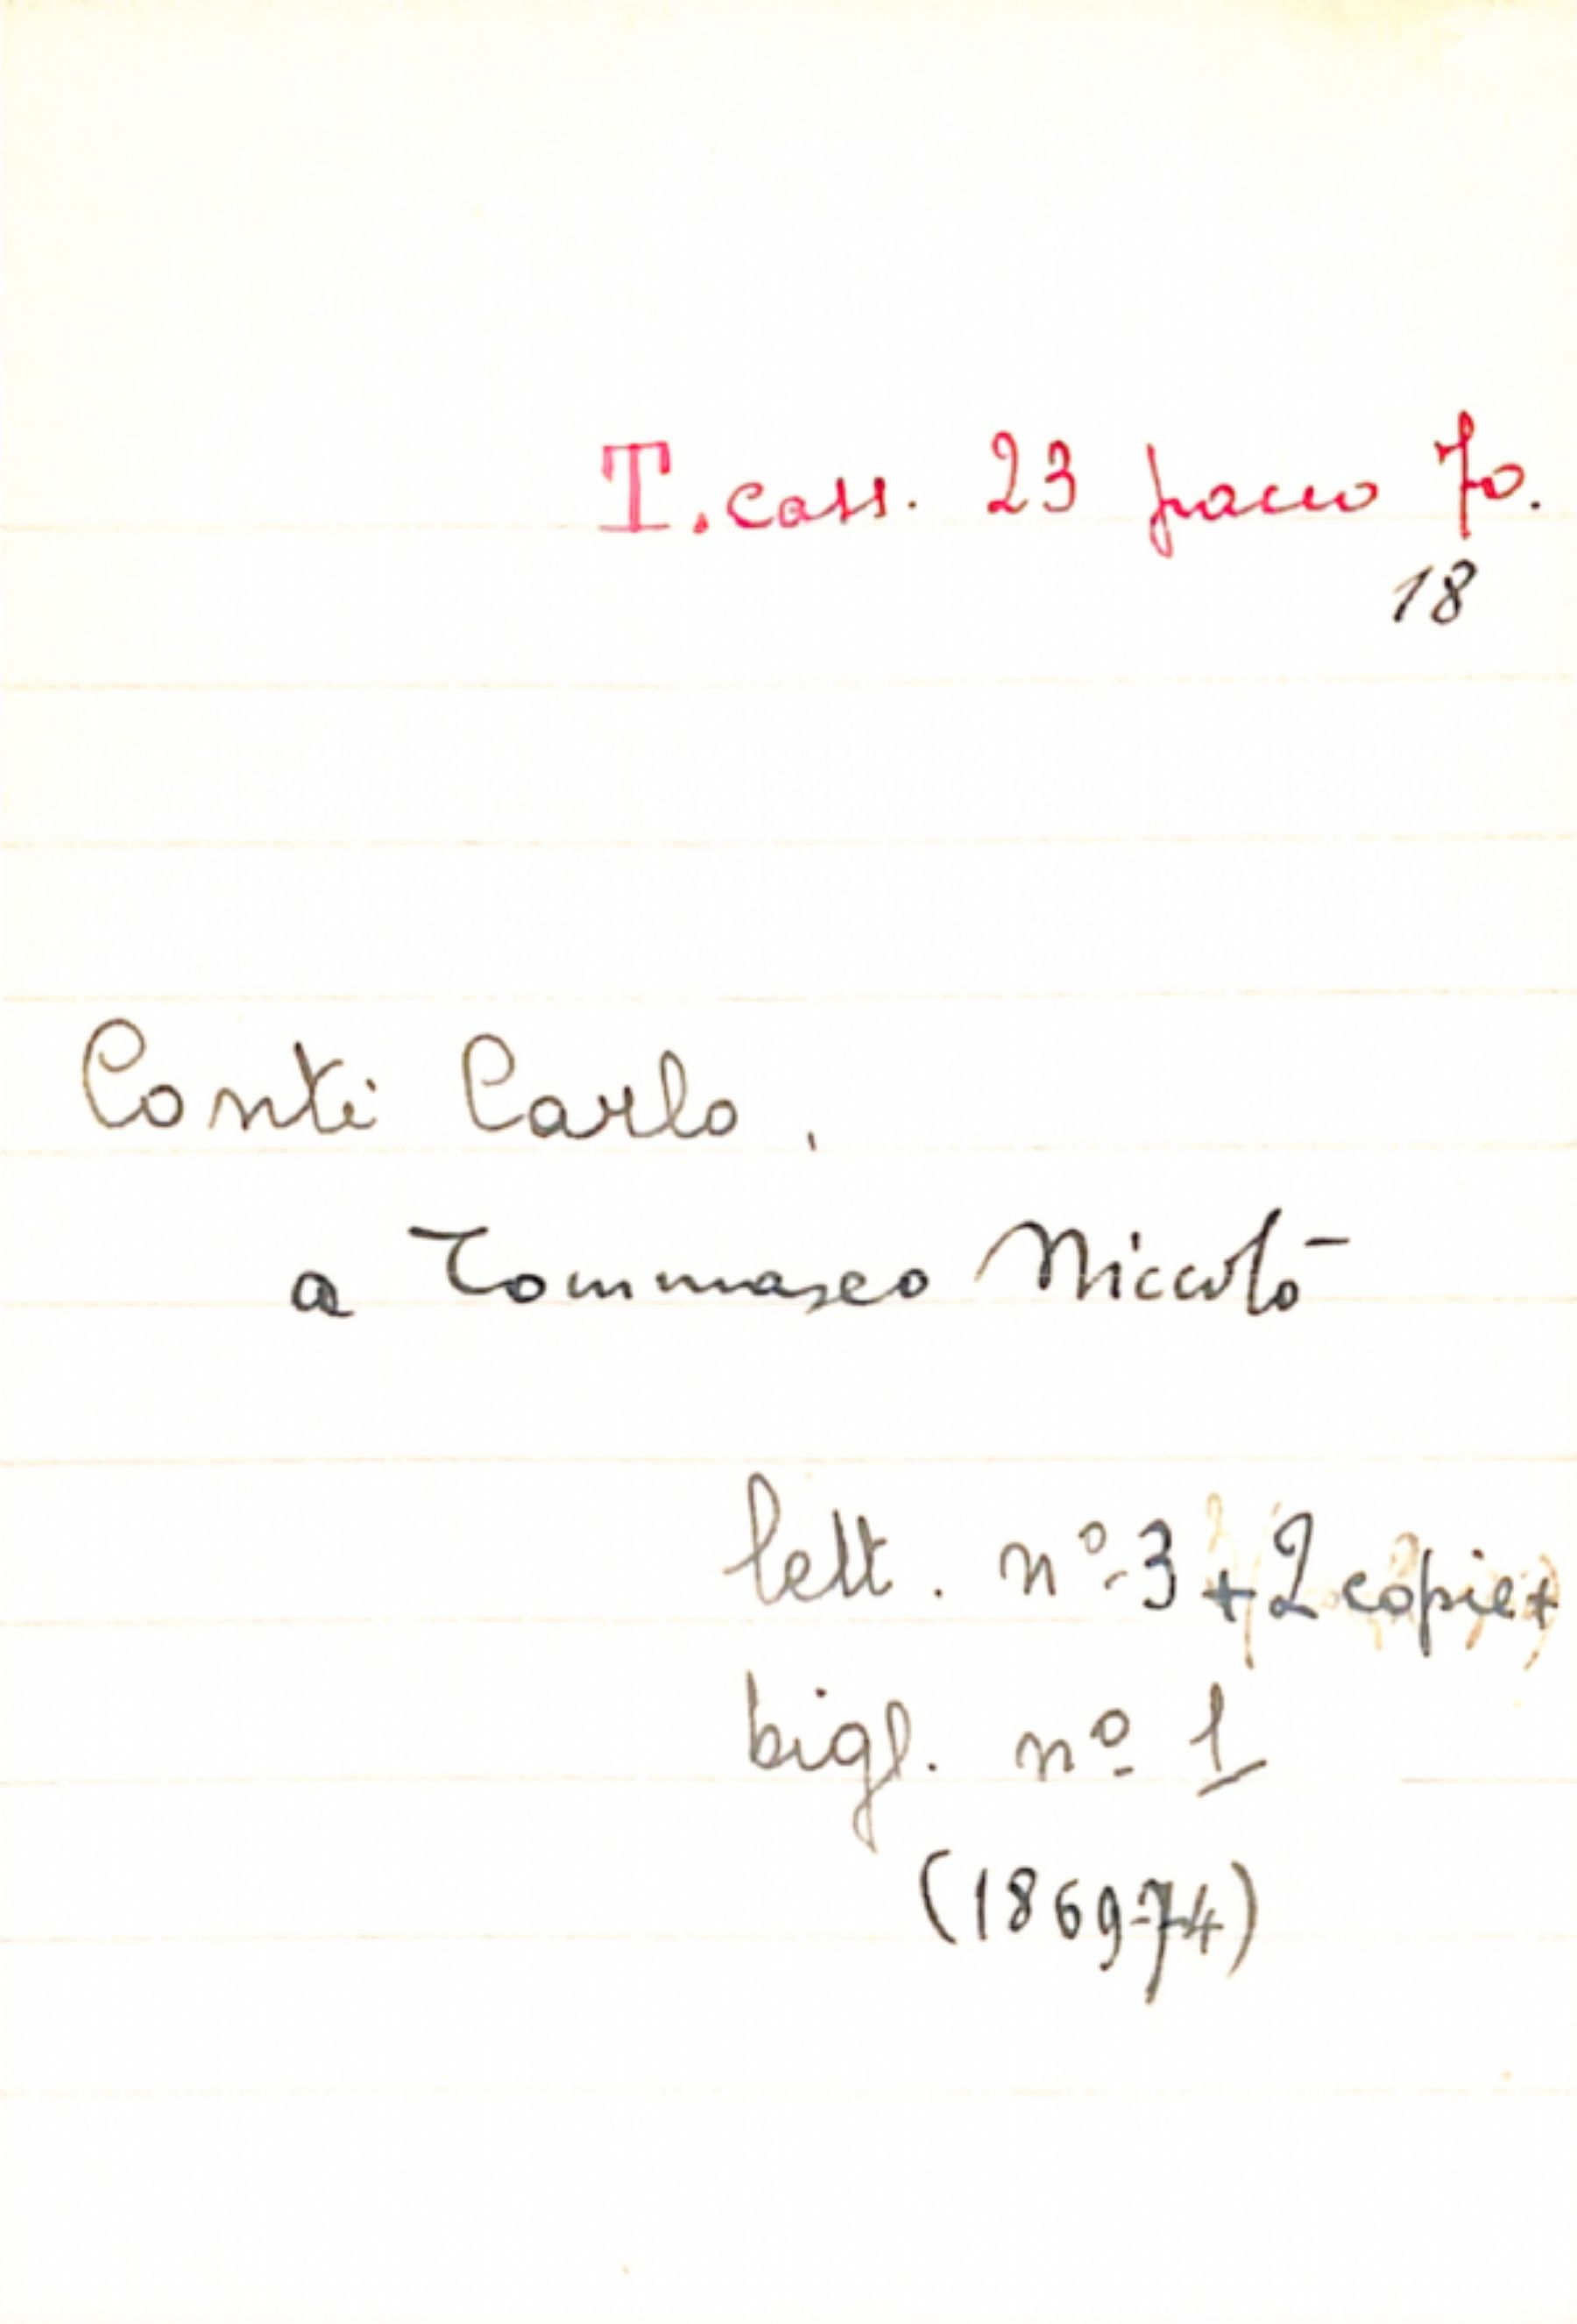 T. cass. 23 pacco 70.
18
Conti Carlo,
a Tommaseo Niccolò
lett. nº 3 + 2 copie +
bigl. nº 1
(1869-74)